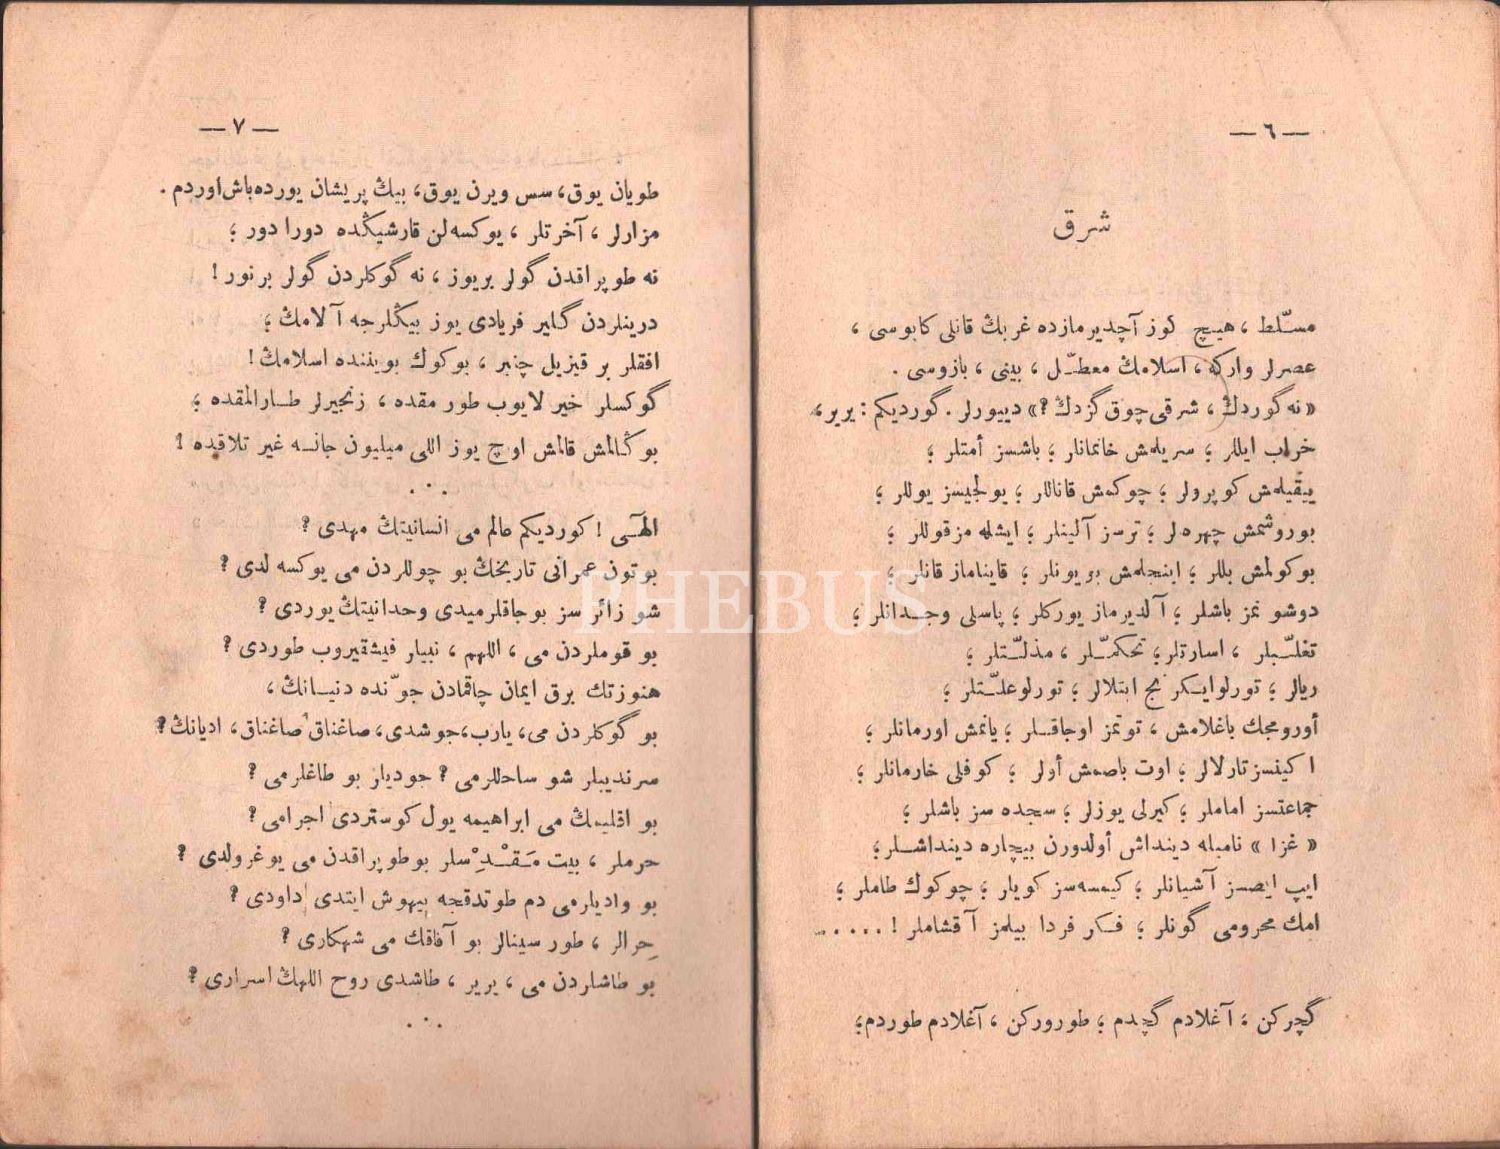 — ٦ —
شرق
مسلّط ، هیچ کوز آچدیرمازده غربڭ قانلی کابوسی ،
عصرلر وارکه ، اسلامڭ معطّل ، بینی ، بازوسی .
« نه گوردڭ ، شرقی چوق گزدڭ ؟ » دییورلر . گوردیکم : یریر ،
خراب ایللر ؛ سریلمش خانمانلر ؛ باشسز أمتلر ؛
ییقیلمش کوپرولر ؛ چوکمش قاناللر ؛ یولجیسز یوللر ؛
بوروشمش چهره‌لر ؛ ترسز آلینلر ؛ ایشله‌مز قوللر ؛
بوکولمش بللر ؛ اینجلمش بویونلر ؛ قایناماز قانلر ؛
دوشونمز باشلر ؛ آلدیرماز یورکلر ؛ پاسلی وجدانلر ؛
تغلّبلر ، اسارتلر ؛ تحکمّلر ، مذلّتلر ؛
ریالر ؛ تورلو ایکرنج ابتلالر ؛ تورلو علّتلر ؛
أورومجك باغلامش ، توتمز اوجاقلر ؛ یانمش اورمانلر ؛
اکینسز تارلالر ؛ اوت باصمش أولر ؛ کوفلی خارمانلر ؛
جماعتسز اماملر ؛ کیرلی یوزلر ؛ سجده سز باشلر ؛
« غزا » نامیله دینداش أولدورن بیچاره دینداشلر ؛
ایپ ایصسز آشیانلر ؛ کیمسه‌سز کویلر ؛ چوکوك طاملر ؛
امك محرومی گونلر ؛ فکر فردا بیلمز آقشاملر ! .....
گچرکن ، آغلادم گچدم ؛ طورورکن ، آغلادم طوردم ؛
— ٧ —
طویان یوق ، سس ویرن یوق ، بیڭ پریشان یورده باش اوردم .
مزارلر ، آخرتلر ، یوکسه‌لن قارشیڭده دورا دور ؛
نه طوپراقدن گولر بریوز ، نه گوکلردن گولر برنور !
درینلردن گلیر فریادی یوز بیڭلرجه آلامڭ ؛
افقلر بر قیزیل چنبر ، بوکوك بویننده اسلامڭ !
گوکسلر خیرلایوب طورمقده ، زنجیرلر طارالمقده ؛
بوڭالمش قالمش اوچ یوز اللی میلیون جانسه غیرتلاقده !
. . .
الهٓی ! کوردیکم عالم می انسانیتڭ مهدی ؟
بوتون عمرانی تاریخڭ بو چوللردن می یوکسه لدی ؟
شو زائرسز بوجاقلرمیدی وحدانیتڭ یوردی ؟
بو قوملردن می ، اللهم ، نبیلر فیشقیروب طوردی ؟
هنوز تك برق ایمان چاقمادن جوّنده دنیانڭ ،
بو گوکلردن می ، یارب ، جوشدی ، صاغناق صاغناق ، ادیانڭ ؟
سرندیبلر شو ساحللرمی ؟ جودیلر بو طاغلرمی ؟
بو اقلیمڭ می ابراهیمه یول کوستردی اجرامی ؟
حرملر ، بیت مَقْدِسلر بو طوپراقدن می یوغرولدی ؟
بو وادیلرمی دم طوتدقجه بیهوش ایتدی داودی ؟
حِرالر ، طور سینالر بو آفاقڭ می شهکاری ؟
بو طاشلردن می ، یریر ، طاشدی روح اللهڭ اسراری ؟
. . .
PHEBUS